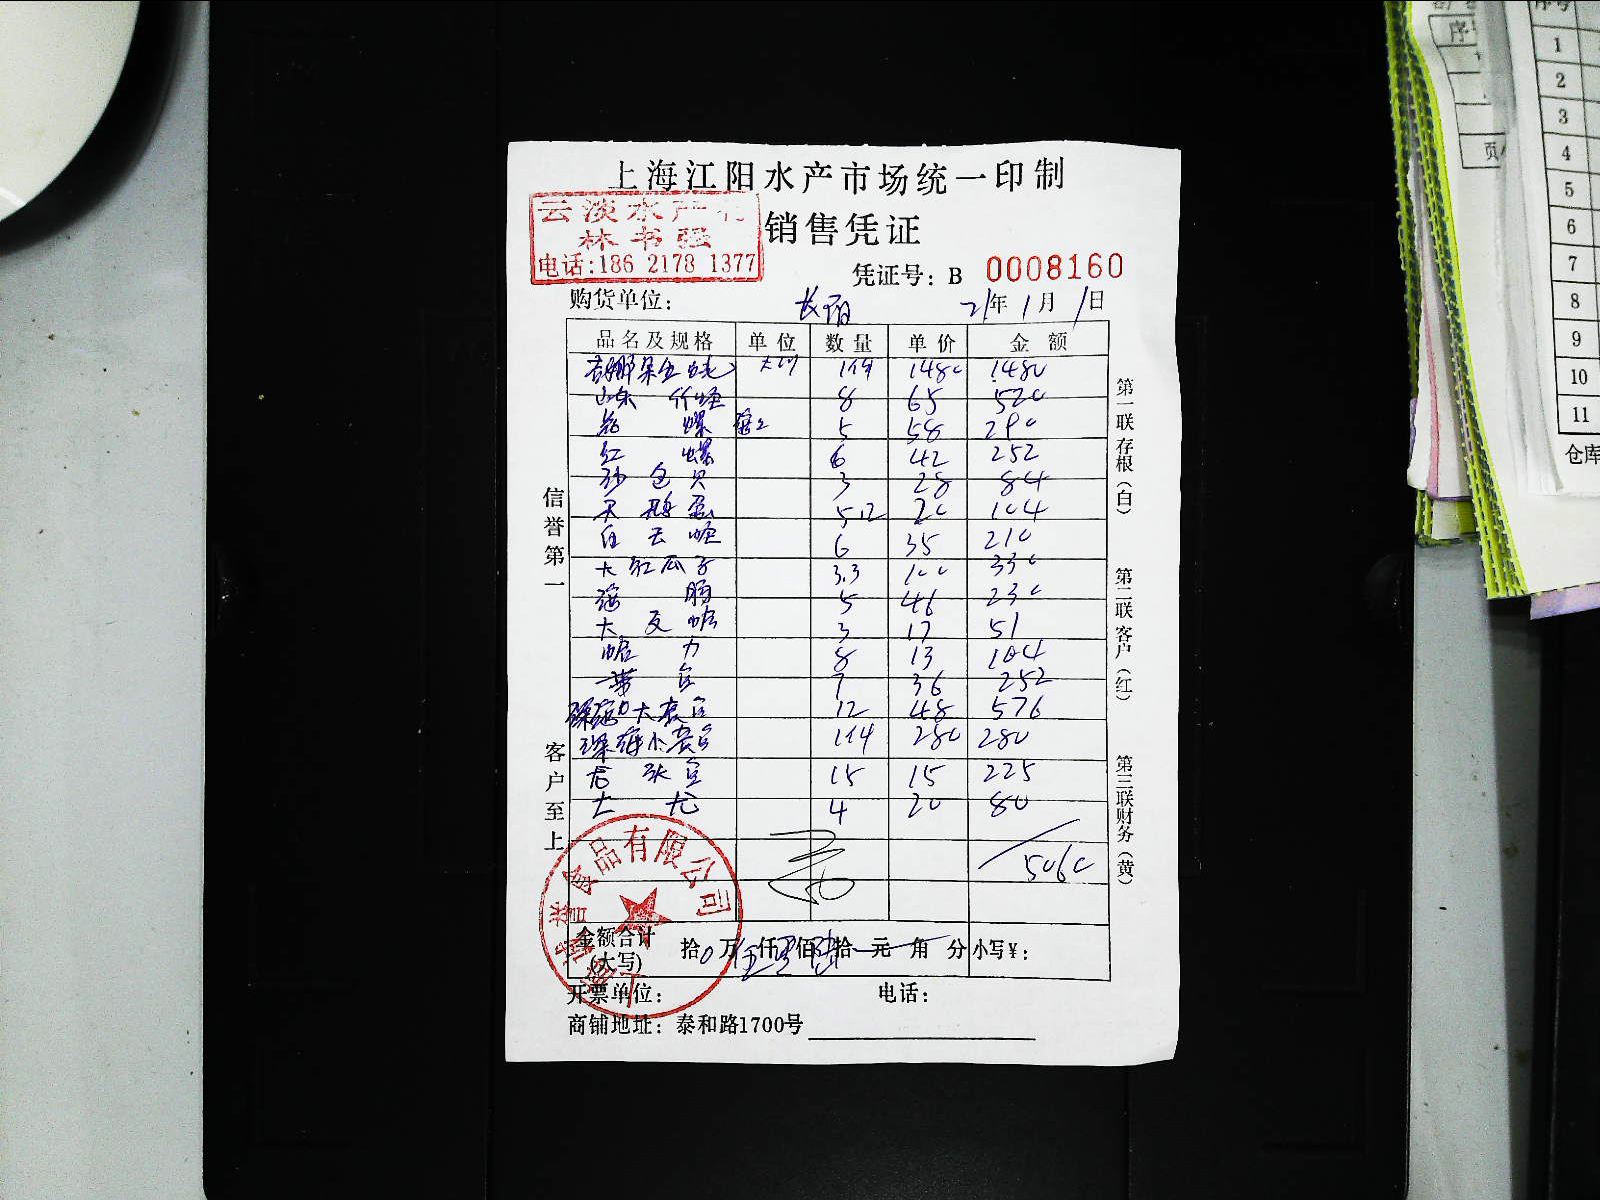 上海江阳水产市场统一印制
云淡水产行
林书强
电话:186 2178 1377
销售凭证
凭证号: B 0008160
购货单位:
21年 1月 1日
品名及规格 单位 数量 单价 金额
1件 1480 1480
山东竹蛏 8 65 520
螺 5 58 290
红螺 6 42 252
沙包贝 3 28 84
天鹅蛋 5.12 20 104
白云蛏 6 35 210
大红瓜子 3.3 100 330
海肠 5 46 230
大瓦蛤 3 17 51
蛤力 8 13 104
带鱼 7 36 252
深海大衣鱼 12 48 576
深海小衣鱼 1件 280 280
老张鱼 15 15 225
大尤 4 20 80
5060
金额合计
(大写)
拾0万伍仟零佰陆拾元角分 小写¥:
开票单位: 电话:
商铺地址: 泰和路1700号
信誉第一 客户至上
第一联存根(白) 第二联客户(红) 第三联财务(黄)
食品有限公司
序号
1
2
3
4
5
6
7
8
9
10
11
仓库